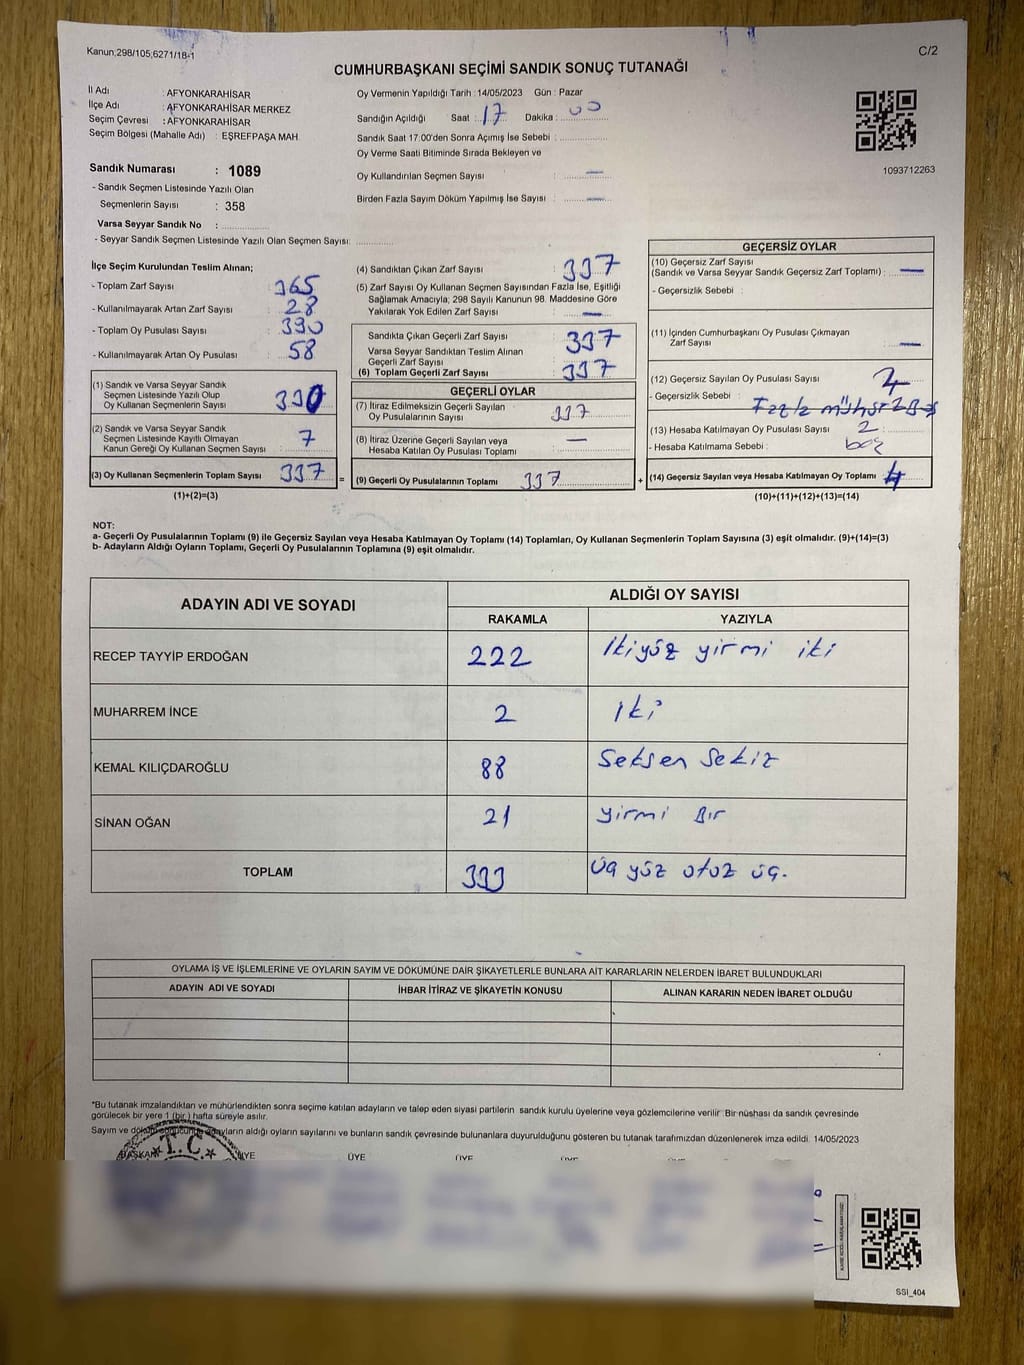 Kanun,298/105,6271/18-1
C/2
CUMHURBAŞKANI SEÇİMİ SANDIK SONUÇ TUTANAĞI
İl Adı : AFYONKARAHİSAR
İlçe Adı : AFYONKARAHİSAR MERKEZ
Seçim Çevresi : AFYONKARAHİSAR
Seçim Bölgesi (Mahalle Adı) : EŞREFPAŞA MAH.
Sandık Numarası : 1089
- Sandık Seçmen Listesinde Yazılı Olan
Seçmenlerin Sayısı : 358
Varsa Seyyar Sandık No :
- Seyyar Sandık Seçmen Listesinde Yazılı Olan Seçmen Sayısı:
Oy Vermenin Yapıldığı Tarih : 14/05/2023 Gün : Pazar
Sandığın Açıldığı Saat : 17 Dakika : 00
Sandık Saat 17:00'den Sonra Açımış İse Sebebi :
Oy Verme Saati Bitiminde Sırada Bekleyen ve
Oy Kullandırılan Seçmen Sayısı : —
Birden Fazla Sayım Döküm Yapılmış İse Sayısı : —
1093712263
İlçe Seçim Kurulundan Teslim Alınan;
- Toplam Zarf Sayısı : 365
- Kullanılmayarak Artan Zarf Sayısı : 28
- Toplam Oy Pusulası Sayısı : 390
- Kullanılmayarak Artan Oy Pusulası : 58
(1) Sandık ve Varsa Seyyar Sandık
Seçmen Listesinde Yazılı Olup
Oy Kullanan Seçmenlerin Sayısı : 330
(2) Sandık ve Varsa Seyyar Sandık
Seçmen Listesinde Kayıtlı Olmayan
Kanun Gereği Oy Kullanan Seçmen Sayısı : 7
(3) Oy Kullanan Seçmenlerin Toplam Sayısı : 337
(1)+(2)=(3)
(4) Sandıktan Çıkan Zarf Sayısı : 337
(5) Zarf Sayısı Oy Kullanan Seçmen Sayısından Fazla İse, Eşitliği
Sağlamak Amacıyla; 298 Sayılı Kanunun 98. Maddesine Göre
Yakılarak Yok Edilen Zarf Sayısı : —
Sandıkta Çıkan Geçerli Zarf Sayısı : 337
Varsa Seyyar Sandıktan Teslim Alınan
Geçerli Zarf Sayısı :
(6) Toplam Geçerli Zarf Sayısı : 337
GEÇERLİ OYLAR
(7) İtiraz Edilmeksizin Geçerli Sayılan
Oy Pusulasının Sayısı : 337
(8) İtiraz Üzerine Geçerli Sayılan veya
Hesaba Katılan Oy Pusulası Toplamı : —
= (9) Geçerli Oy Pusulalarının Toplamı : 337
GEÇERSİZ OYLAR
(10) Geçersiz Zarf Sayısı
(Sandık ve Varsa Seyyar Sandık Geçersiz Zarf Toplamı) : —
- Geçersizlik Sebebi :
(11) İçinden Cumhurbaşkanı Oy Pusulası Çıkmayan
Zarf Sayısı : —
(12) Geçersiz Sayılan Oy Pusulası Sayısı :
- Geçersizlik Sebebi : Fazla mühür
(13) Hesaba Katılmayan Oy Pusulası Sayısı : 2
- Hesaba Katılmama Sebebi : boş
+ (14) Geçersiz Sayılan veya Hesaba Katılmayan Oy Toplamı : 4
(10)+(11)+(12)+(13)=(14)
NOT:
a- Geçerli Oy Pusulalarının Toplamı (9) ile Geçersiz Sayılan veya Hesaba Katılmayan Oy Toplamı (14) Toplamları, Oy Kullanan Seçmenlerin Toplam Sayısına (3) eşit olmalıdır. (9)+(14)=(3)
b- Adayların Aldığı Oyların Toplamı, Geçerli Oy Pusulalarının Toplamına (9) eşit olmalıdır.
ADAYIN ADI VE SOYADI
ALDIĞI OY SAYISI
RAKAMLA YAZIYLA
RECEP TAYYİP ERDOĞAN 222 İkiyüz yirmi iki
MUHARREM İNCE 2 İki
KEMAL KILIÇDAROĞLU 88 Seksen Sekiz
SİNAN OĞAN 21 yirmi Bir
TOPLAM 333 üç yüz otuz üç.
OYLAMA İŞ VE İŞLEMLERİNE VE OYLARIN SAYIM VE DÖKÜMÜNE DAİR ŞİKAYETLERLE BUNLARA AİT KARARLARIN NELERDEN İBARET BULUNDUKLARI
ADAYIN ADI VE SOYADI İHBAR İTİRAZ VE ŞİKAYETİN KONUSU ALINAN KARARIN NEDEN İBARET OLDUĞU
*Bu tutanak imzalandıktan ve mühürlendikten sonra seçime katılan adayların ve talep eden siyasi partilerin sandık kurulu üyelerine veya gözlemcilerine verilir. Bir nüshası da sandık çevresinde
görülecek bir yere 1 (bir ) hafta süreyle asılır.
Sayım ve döküm sonucunda adayların aldığı oyların sayılarını ve bunların sandık çevresinde bulunanlara duyurulduğunu gösteren bu tutanak tarafımızdan düzenlenerek imza edildi. 14/05/2023
BAŞKAN ÜYE ÜYE ÜYE
T.C.
SSI_404